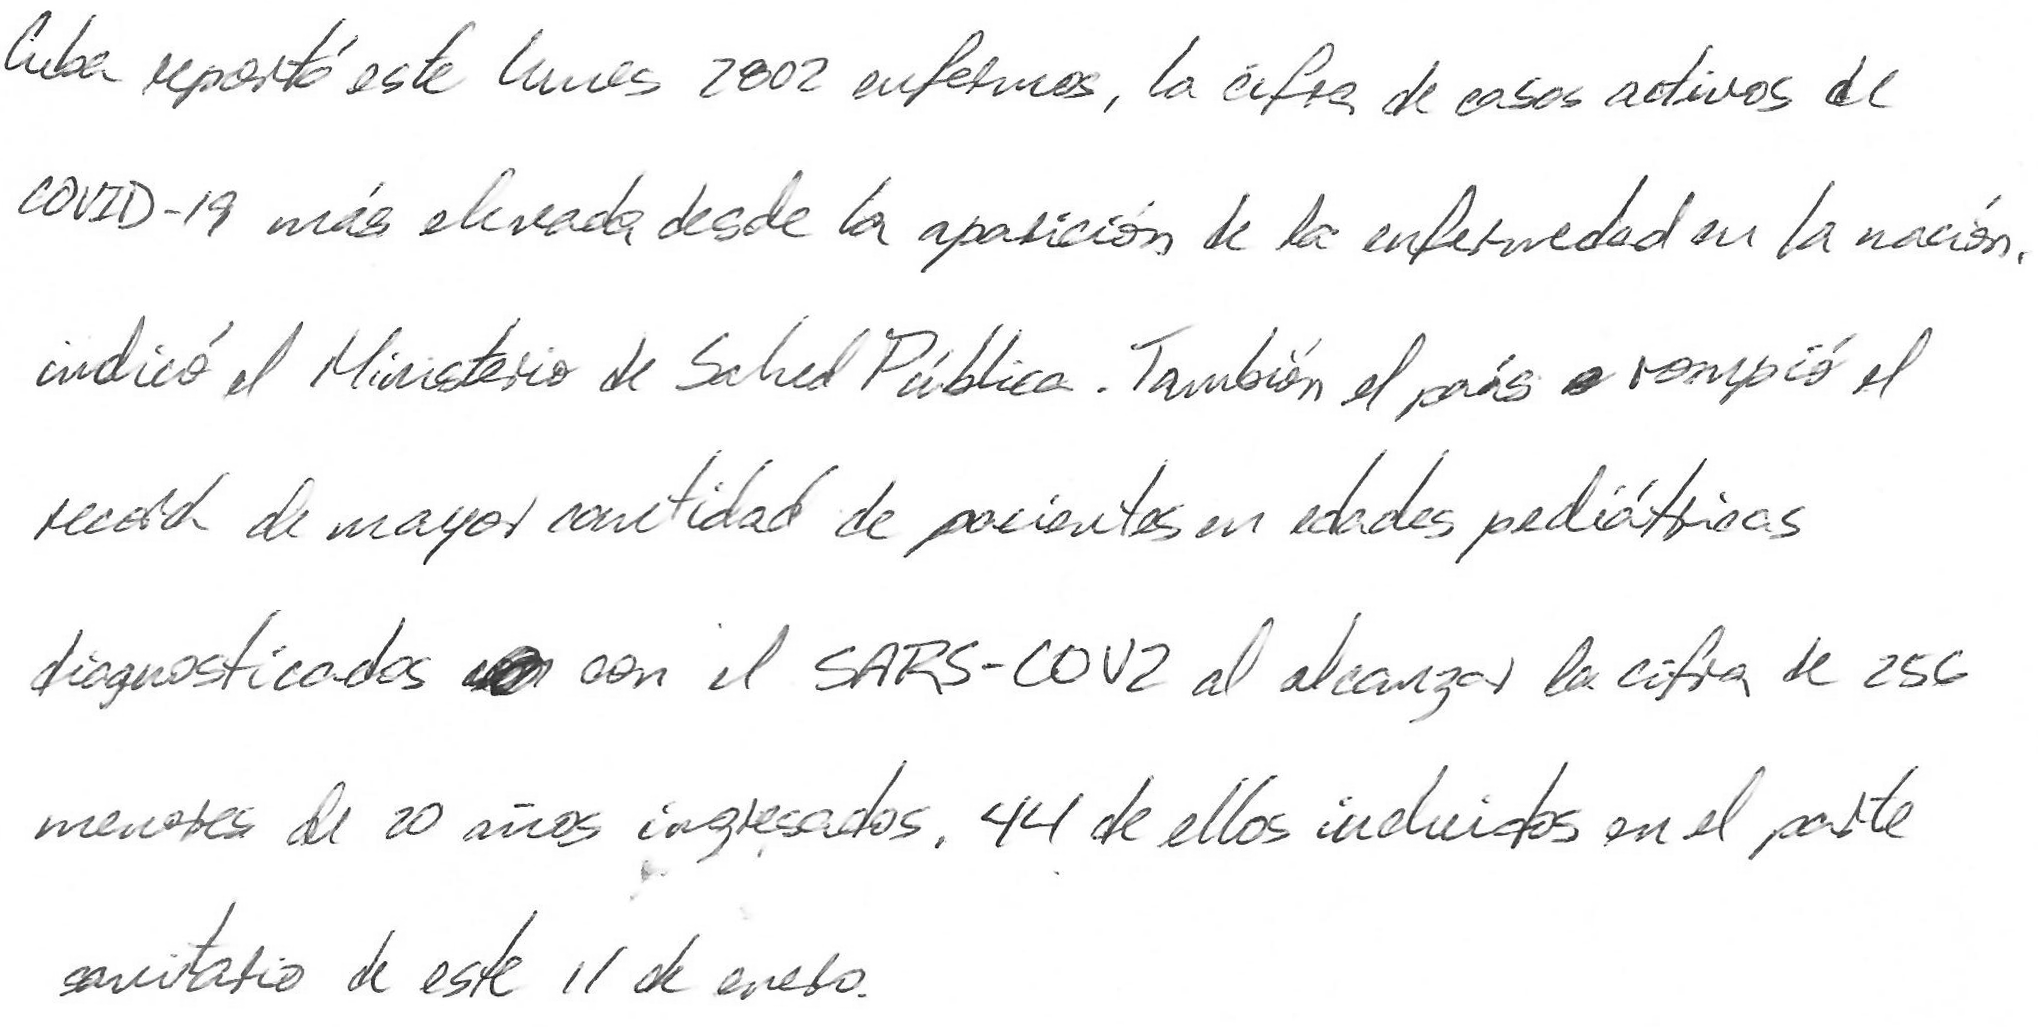 Cuba reportó este lunes 2802 enfermos, la cifra de casos activos de
COVID-19 más elevada desde la aparición de la enfermedad en la nación,
indicó el Ministerio de Salud Pública. También el país rompió el
record de mayor cantidad de pacientes en edades pediátricas
diagnosticados con el SARS-COV2 al alcanzar la cifra de 256
menores de 20 años ingresados, 44 de ellos incluidos en el parte
sanitario de este 11 de enero.